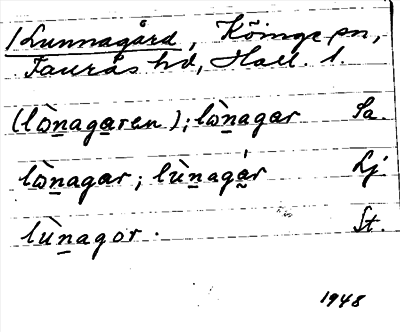 1 Lunnagård, Köinge sn,
Faurås hd, Hall. l.
(lὼnagaren); lὼnagar Sa.
lὼnagar; lùnagár Lj.
lùnagor. St.
1948